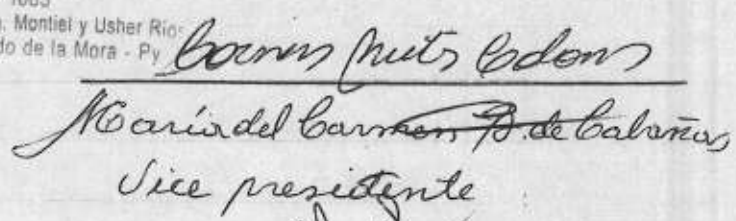 . Montiel y Usher Rios
do de la Mora - Py
María del Carmen B. de Cabañas
Vice presidente